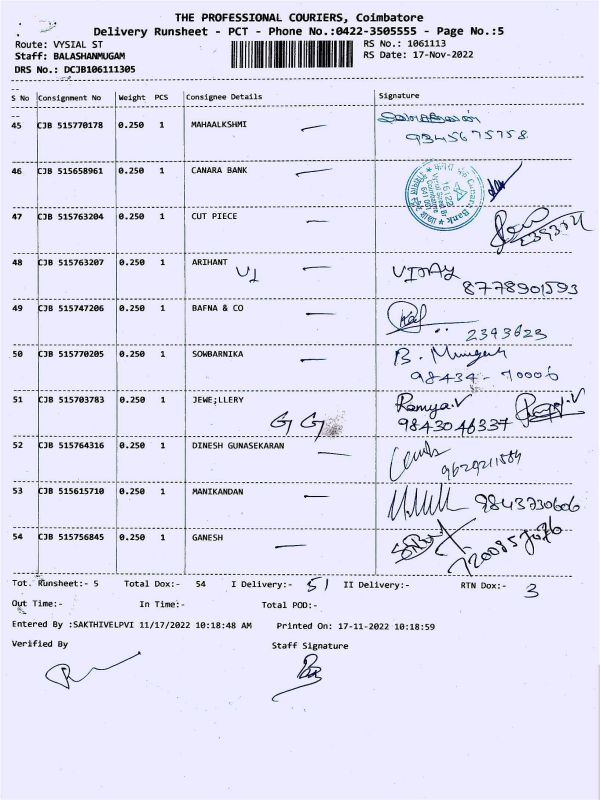 THE PROFESSIONAL COURIERS, Coimbatore
Delivery Runsheet - PCT - Phone No.:0422-3505555 - Page No.:5
Route: VYSIAL ST
RS No.: 1061113
Staff: BALASHANMUGAM
RS Date: 17-Nov-2022
DRS No.: DCJB106111305
S No Consignment No Weight PCS Consignee Details Signature
45 CJB 515770178 0.250 1 MAHAALKSHMI
9345675758
46 CJB 515658961 0.250 1 CANARA BANK
Canara Bank
47 CJB 515763204 0.250 1 CUT PIECE
48 CJB 515763207 0.250 1 ARIHANT
VJ VIJAY
8778901593
49 CJB 515747206 0.250 1 BAFNA & CO
2393623
50 CJB 515770205 0.250 1 SOWBARNIKA B. Murugesh
98434-70006
51 CJB 515703783 0.250 1 JEWE;LLERY Ramya.V
G G 9843046337
52 CJB 515764316 0.250 1 DINESH GUNASEKARAN
53 CJB 515615710 0.250 1 MANIKANDAN 9843730606
54 CJB 515756845 0.250 1 GANESH
Tot. Runsheet:- 5 Total Dox:- 54 I Delivery:- 51 II Delivery:- RTN Dox:- 3
Out Time:- In Time:- Total POD:-
Entered By :SAKTHIVELPVI 11/17/2022 10:18:48 AM Printed On: 17-11-2022 10:18:59
Verified By Staff Signature